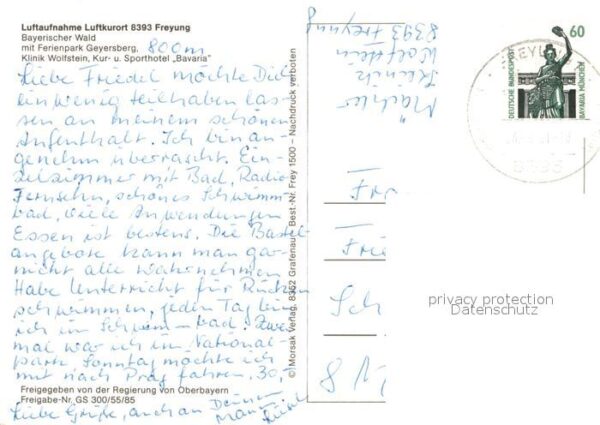 Luftaufnahme Luftkurort 8393 Freyung
Bayerischer Wald
mit Ferienpark Geyersberg, 800m
Klinik Wolfstein, Kur- u. Sporthotel „Bavaria“
Liebe Friedel möchte Dich
ein wenig teilhaben las-
sen an meinem schönen
Aufenthalt. Ich bin an-
genehm überrascht. Ein-
zelzimmer mit Bad, Radio
Fernsehn, schönes Schwimm-
bad, viele Anwendungen
Essen ist bestens. Die Bastel
angebote kann man gar
nicht alle wahrnehmen
Habe Unterricht für Rücken
schwimmen, jeden Tag bin
ich im Schwimm-bad. Zwei
mal war ich im National-
park Sonntag möchte ich
mit nach Prag fahren. 30,
Freigegeben von der Regierung von Oberbayern
Freigabe-Nr. GS 300/55/85
Liebe Grüße, auch an Deinen
Mann
© Morsak Verlag, 8352 Grafenau, Best.-Nr. Frey 1500 – Nachdruck verboten
Klinik
Wolfstein
8393 Freyung
60
DEUTSCHE BUNDESPOST
BAVARIA MÜNCHEN
FREYUNG
8393
Sch
8
privacy protection
Datenschutz